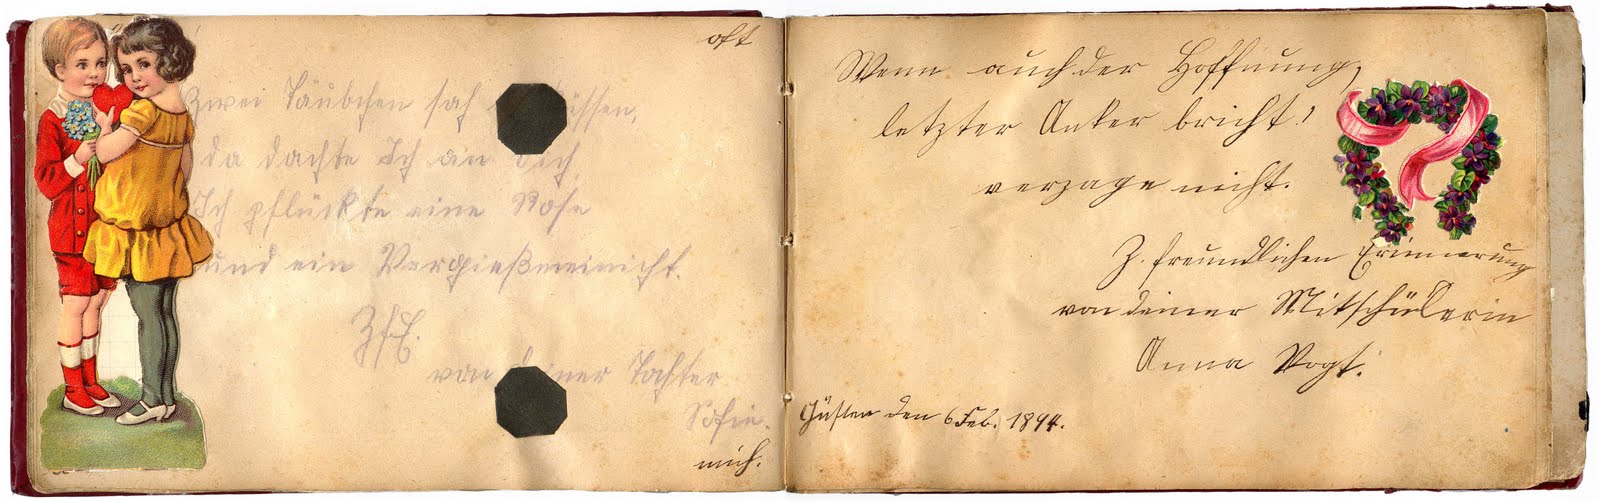 oft
Zwei Täubchen sah küssen,
da dachte Ich an Dich.
Ich pflückte eine Rose
und ein Vergießmeinicht.
Z. f. E.
von deiner Tochter
Sofie.
mich.
Wenn auch der Hoffnung,
letzter Anker bricht!
verzage nicht.
Z. freundlichen Erinnerung
von deiner Mitschülerin
Anna Vogt.
Güsten den 6 Feb. 1894.